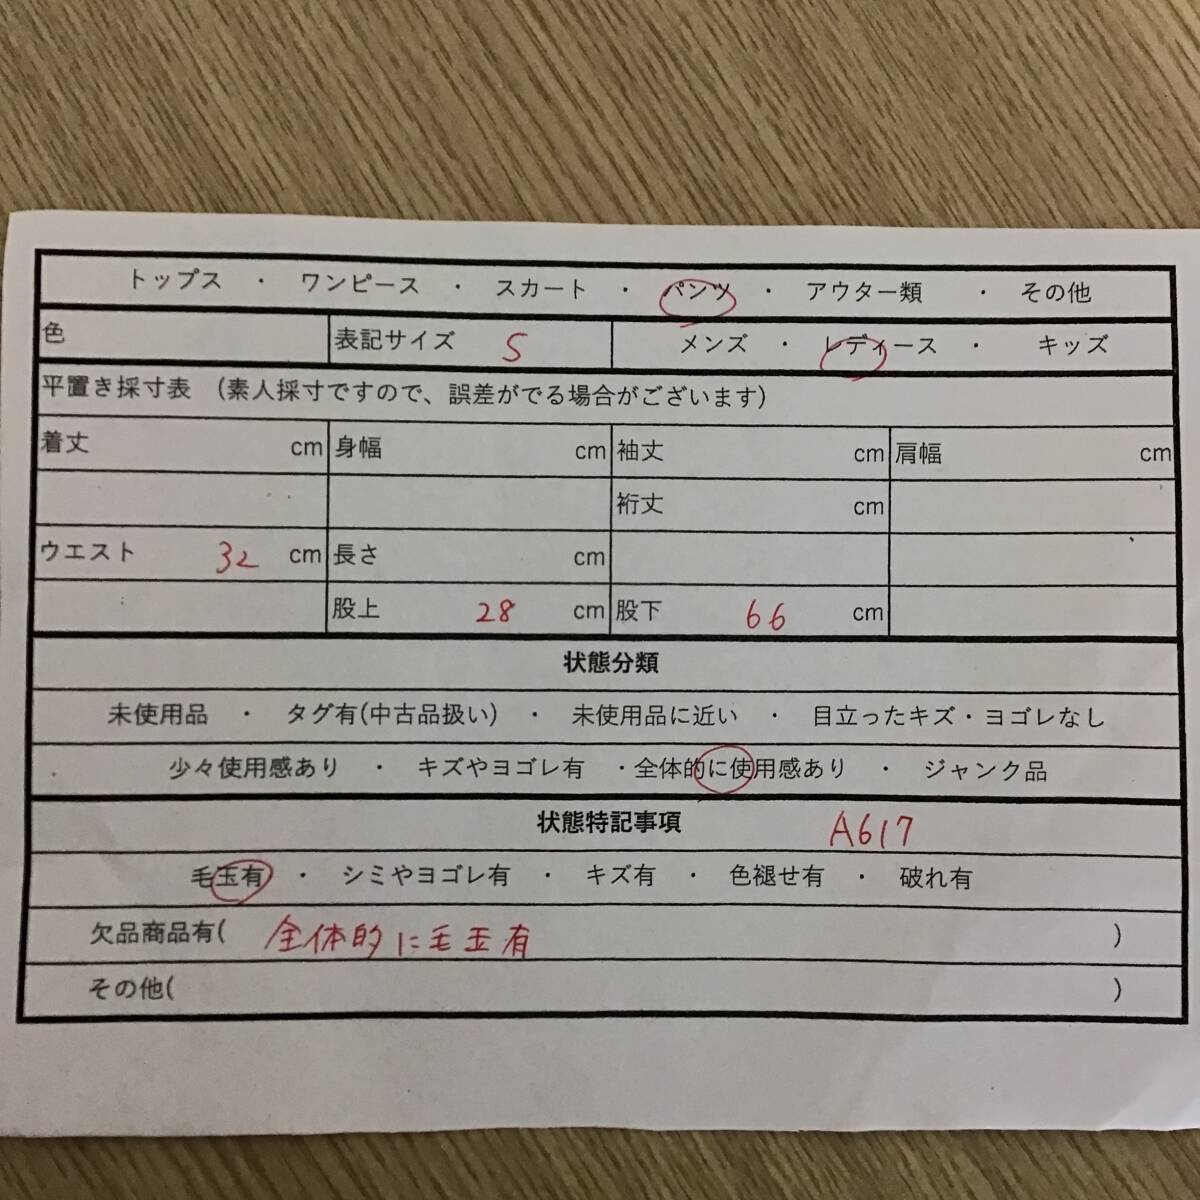 トップス ・ ワンピース ・ スカート ・ パンツ ・ アウター類 ・ その他
色 表記サイズ S メンズ ・ レディース ・ キッズ
平置き採寸表 (素人採寸ですので、誤差がでる場合がございます)
着丈 cm 身幅 cm 袖丈 cm 肩幅 cm
裄丈 cm
ウエスト 32 cm 長さ cm
股上 28 cm 股下 66 cm
状態分類
未使用品 ・ タグ有(中古品扱い) ・ 未使用品に近い ・ 目立ったキズ・ヨゴレなし
少々使用感あり ・ キズやヨゴレ有 ・全体的に使用感あり ・ ジャンク品
状態特記事項 A617
毛玉有 ・ シミやヨゴレ有 ・ キズ有 ・ 色褪せ有 ・ 破れ有
欠品商品有( 全体的に毛玉有 )
その他( )